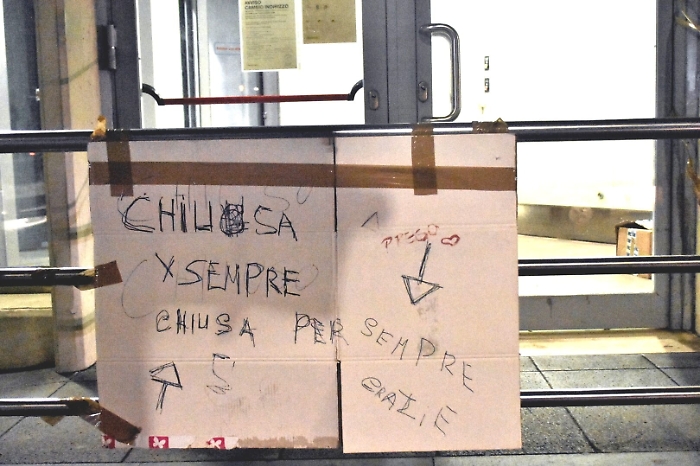 AVVISO
CAMBIO INDIRIZZO
CHIUSA
X SEMPRE
CHIUSA PER SEMPRE
GRAZIE